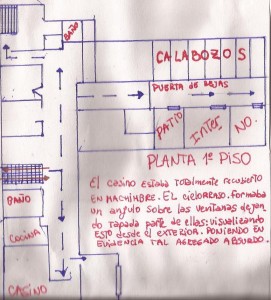 BAÑO
CALABOZOS
PUERTA DE REJAS
PATIO INTERNO.
PLANTA 1º PISO
BAÑO
COCINA
CASINO
El casino estaba totalmente recubierto
EN MACHIMBRE. EL CIELORRASO, formaba
un angulo sobre las ventanas dejan
do tapada parte de ellas: visualizando
ESTO desde el EXTERIOR. PONIENDO EN
EVIDENCIA TAL AGREGADO ABSURDO.